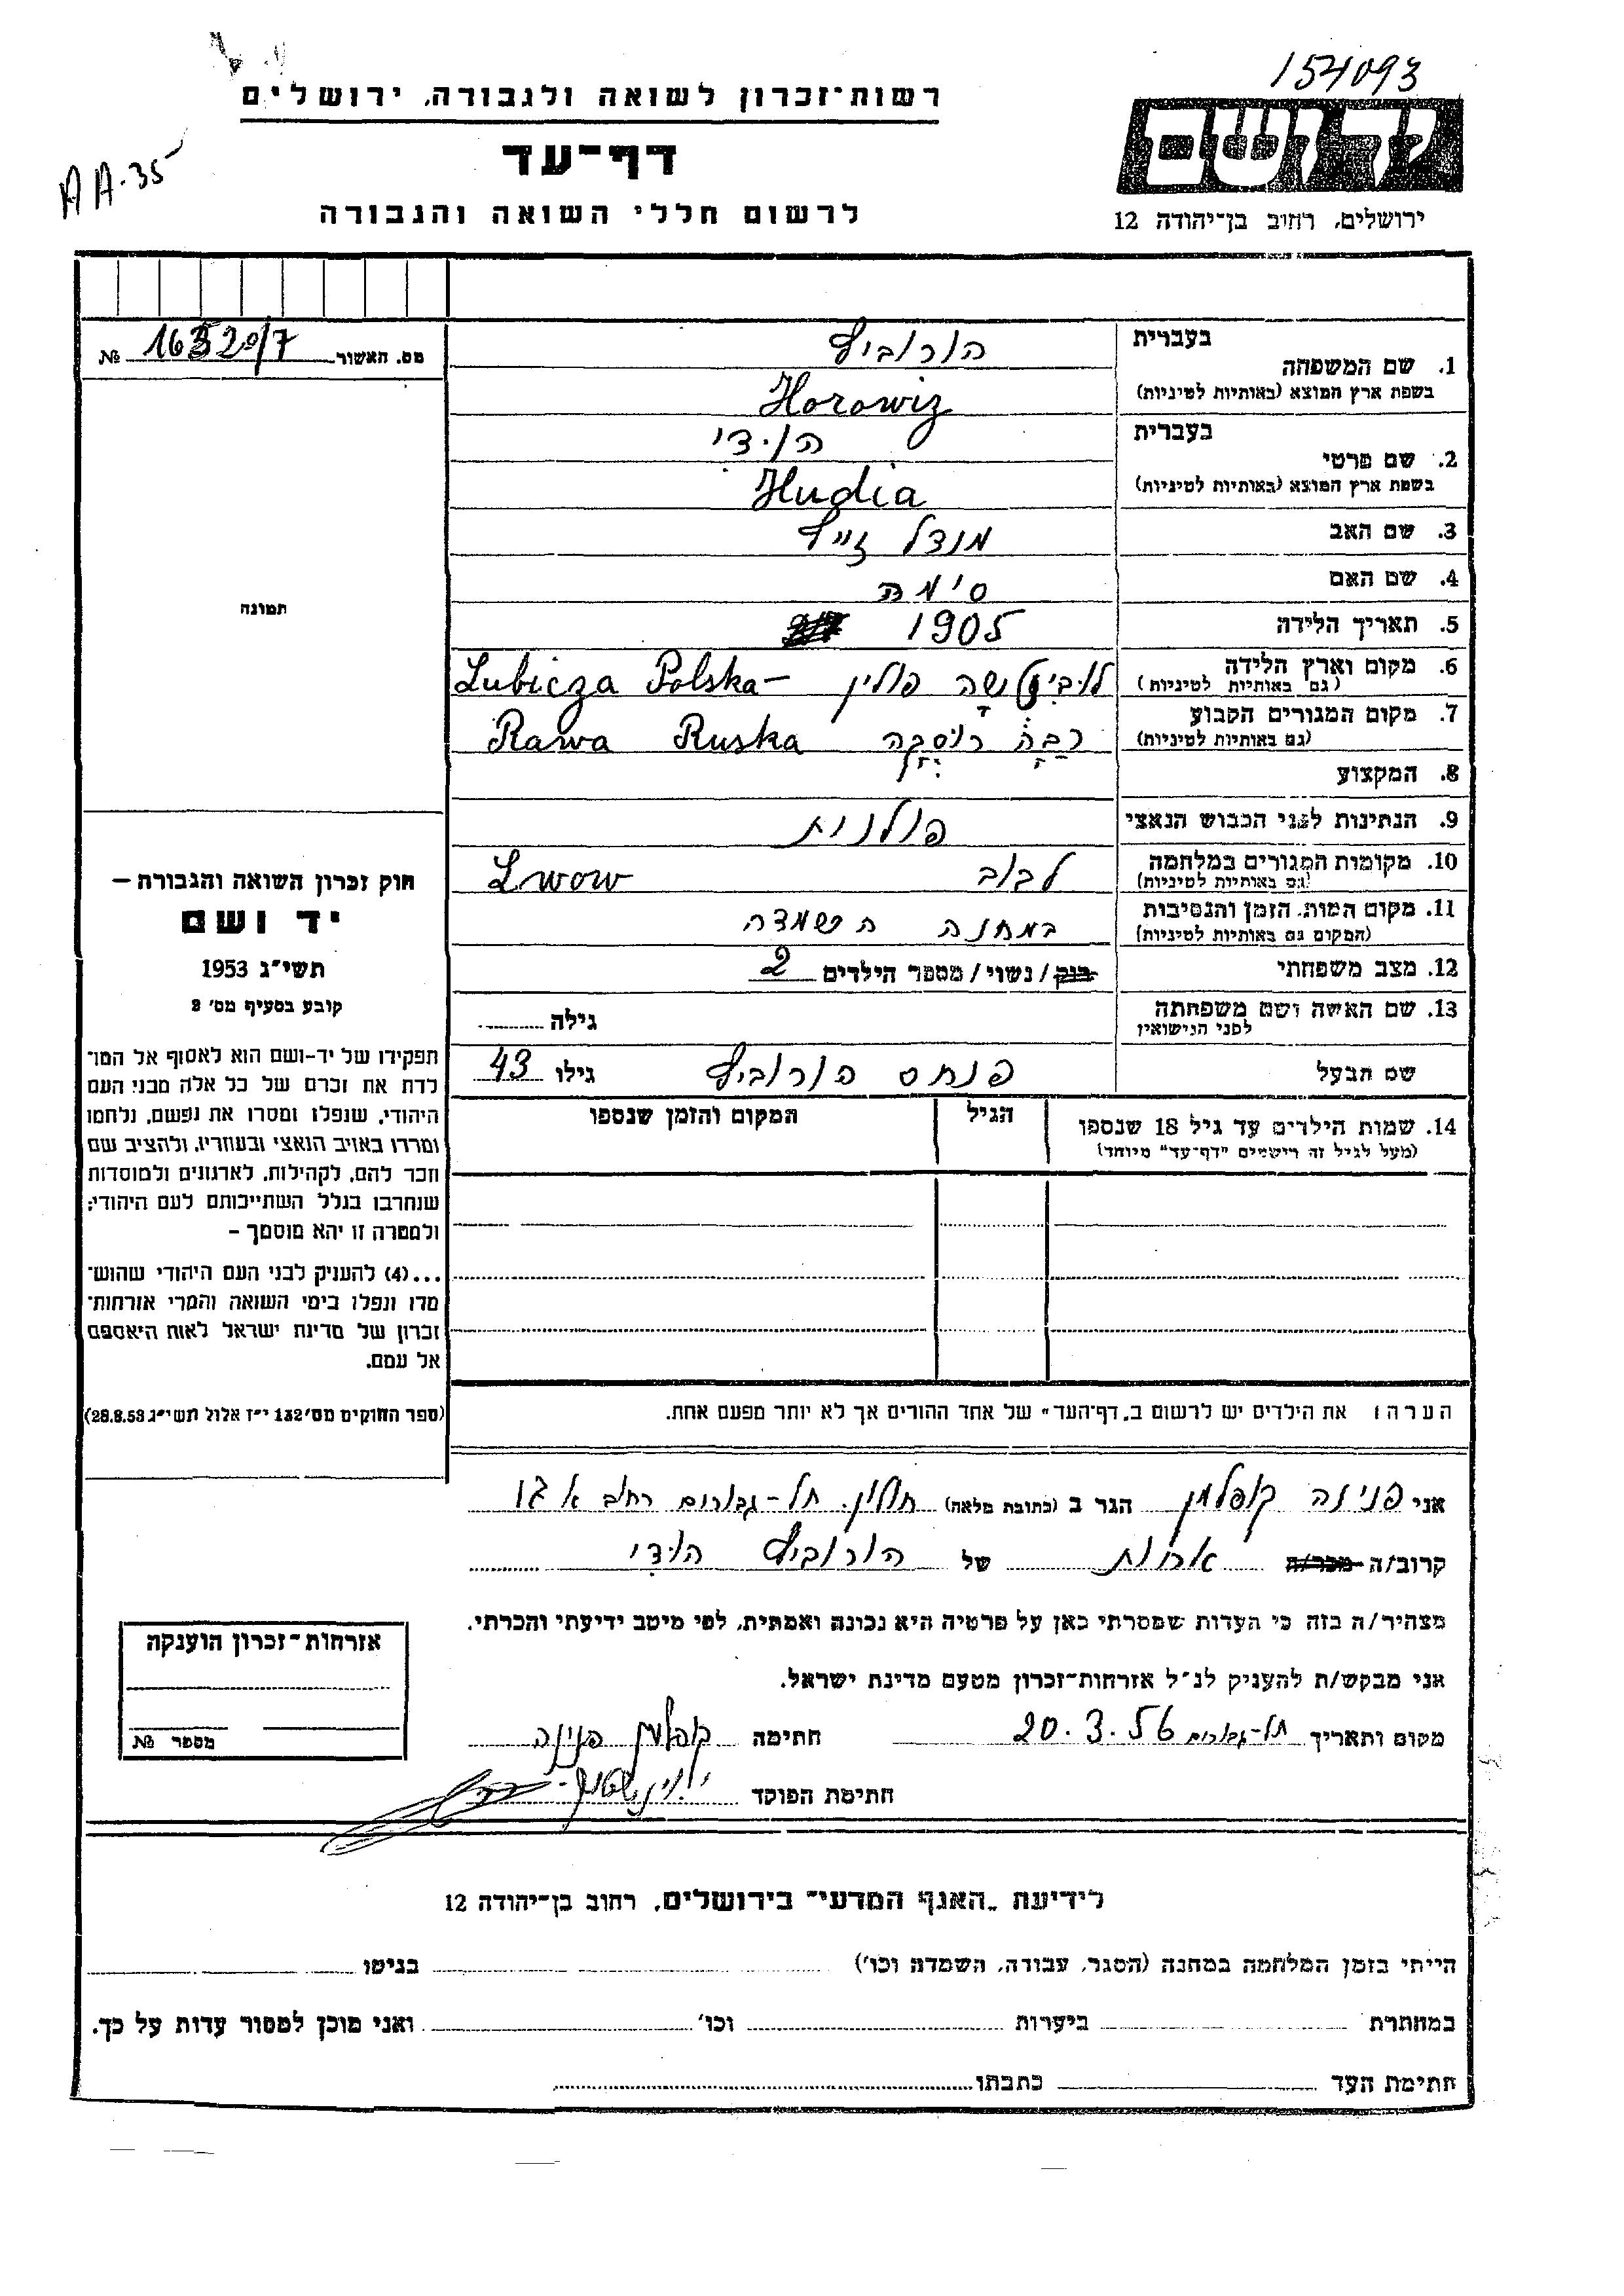 154093
רשות־זכרון לשואה ולגבורה, ירושלים
יד ושם
דף־עד
AA-35
לרשום חללי השואה והגבורה
ירושלים, רחוב בן־יהודה 12
מס. האשור № 16320/7
1. שם המשפחה
בעברית הורוביץ
בשפת ארץ המוצא (באותיות לטיניות) Horowiz
2. שם פרטי
בעברית הודי
בשפת ארץ המוצא (באותיות לטיניות) Hudia
3. שם האב מנדל זייף
4. שם האם סימה
תמונה
5. תאריך הלידה 1905
6. מקום וארץ הלידה פולין Lubicza Polska-
(גם באותיות לטיניות)
7. מקום המגורים הקבוע Rawa Ruska
(גם באותיות לטיניות)
8. המקצוע
9. הנתינות לפני הכבוש הנאצי פולנית
10. מקומות המגורים במלחמה לבוב Lwow
(גם באותיות לטיניות)
11. מקום המות, הזמן והנסיבות במחנה השמדה
(המקום גם באותיות לטיניות)
12. מצב משפחתי רווק/נשוי/מספר הילדים 2
13. שם האשה ושם משפחתה גילה
לפני הנישואין
שם הבעל פנחס הורוביץ גילו 43
14. שמות הילדים עד גיל 18 שנספו הגיל המקום והזמן שנספו
(מעל לגיל זה רישמים "דף־עד" מיוחד)
חוק זכרון השואה והגבורה –
יד ושם
תשי״ג 1953
קובע בסעיף מס׳ 2
תפקידו של יד-ושם הוא לאסוף אל המו־
לדת את זכרם של כל אלה מבני העם
היהודי, שנפלו ומסרו את נפשם, נלחמו
ומרדו באויב הנאצי ובעוזריו, ולהציב שם
וזכר להם, לקהילות, לארגונים ולמוסדות
שנחרבו בגלל השתייכותם לעם היהודי;
ולמטרה זו יהא מוסמך –
...(4) להעניק לבני העם היהודי שהוש־
מדו ונפלו בימי השואה והמרי אזרחות־
זכרון של מדינת ישראל לאות היאספם
אל עמם.
(ספר החוקים מס׳ 132 י״ז אלול תשי״ג 28.8.53)
הערה: את הילדים יש לרשום ב„דף־העד" של אחד ההורים אך לא יותר מפעם אחת.
אני פנינה קופלמן הגר ב (כתובת מלאה) חולון, תל-גבורים רחוב
קרוב/ה מכר/ה אחות של הורוביץ הודי
מצהיר/ה בזה כי העדות שמסרתי כאן על פרטיה היא נכונה ואמתית, לפי מיטב ידיעתי והכרתי.
אני מבקש/ת להעניק לנ״ל אזרחות־זכרון מטעם מדינת ישראל.
מקום ותאריך תל-גבורים 20.3.56 חתימה קופלמן פנינה
חתימת הפוקד
אזרחות־זכרון הוענקה
מספר №
לידיעת „האגף המדעי״ בירושלים, רחוב בן־יהודה 12
הייתי בזמן המלחמה במחנה (הסגר, עבודה, השמדה וכו׳) בגיטו
במחתרת ביערות וכו׳ ואני מוכן למסור עדות על כך.
חתימת העד כתבתו